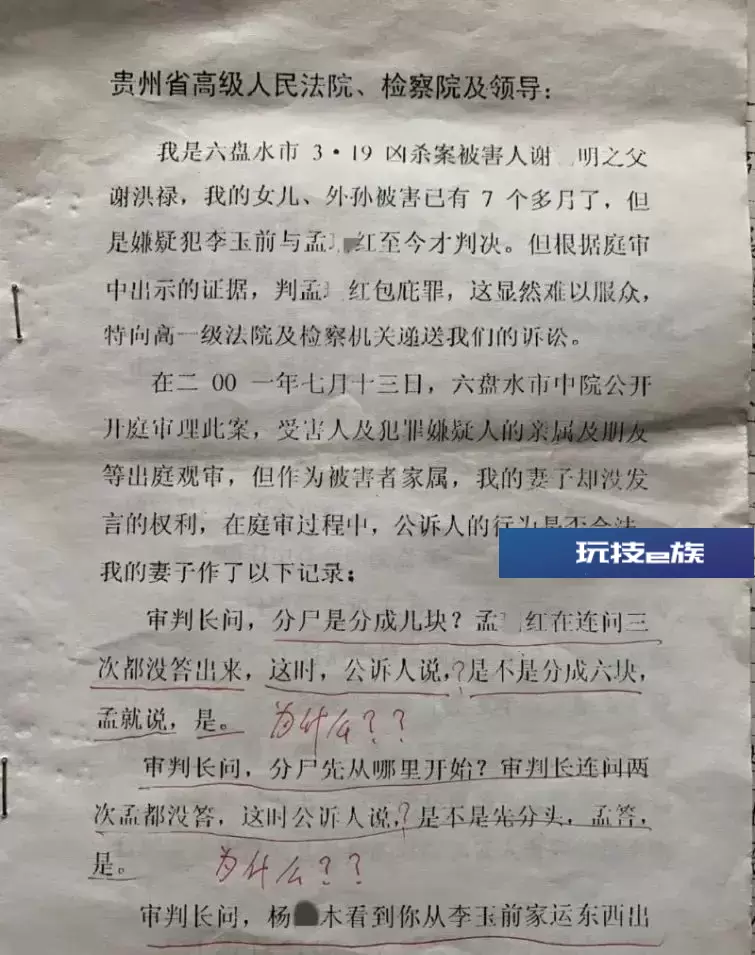 贵州省高级人民法院、检察院及领导：
我是六盘水市 3·19 凶杀案被害人谢 明之父
谢洪禄，我的女儿、外孙被害已有 7 个多月了，但
是嫌疑犯李玉前与孟 红至今才判决。但根据庭审
中出示的证据，判孟 红包庇罪，这显然难以服众，
特向高一级法院及检察机关递送我们的诉讼。
在二 00 一年七月十三日，六盘水市中院公开
开庭审理此案，受害人及犯罪嫌疑人的亲属及朋友
等出庭观审，但作为被害者家属，我的妻子却没发
言的权利，在庭审过程中，公诉人的行为是否合法
玩技e族
我的妻子作了以下记录：
审判长问，分尸是分成几块？孟 红在连问三
次都没答出来，这时，公诉人说，？是不是分成六块，
孟就说，是。 为什么？？
审判长问，分尸先从哪里开始？审判长连问两
次孟都没答，这时公诉人说，？是不是先分头，孟答，
是。 为什么？？
审判长问，杨 木看到你从李玉前家运东西出